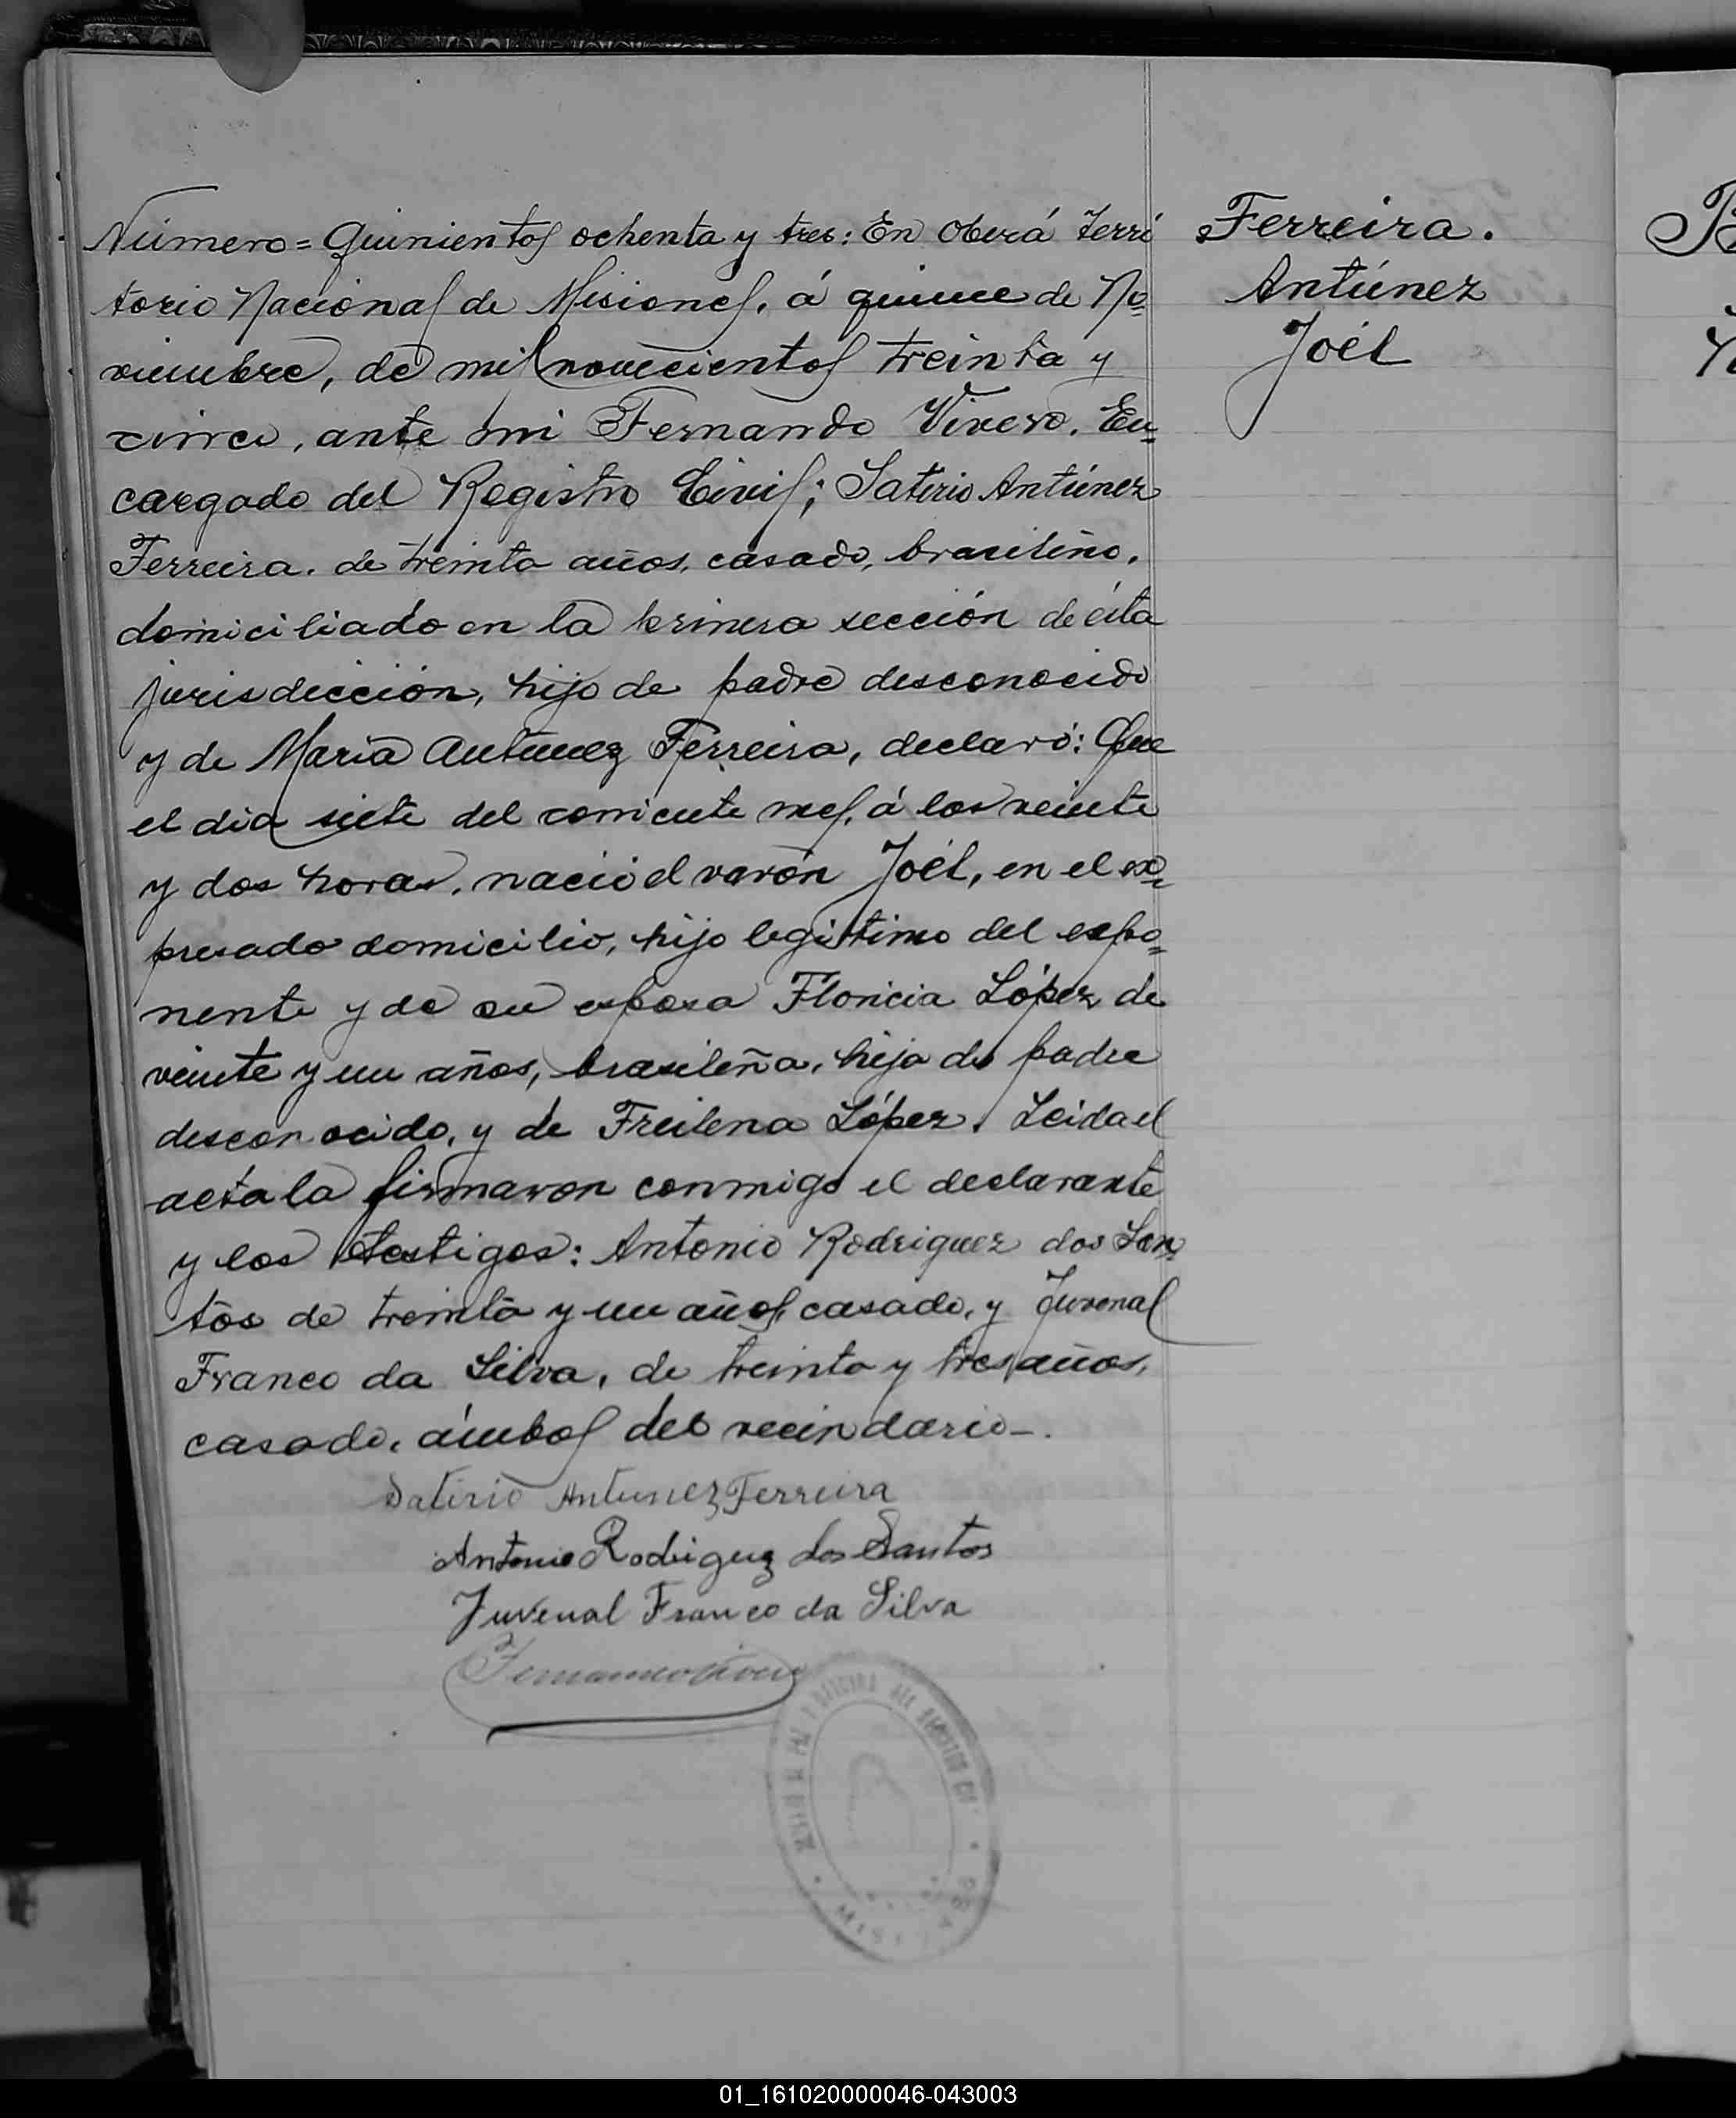 Número = Quinientos ochenta y tres: En Oberá Terri
torio Nacional de Misiones, á quince de No=
viembre, de mil novecientos treinta y
cinco, ante mi Fernando Vivero, En=
cargado del Registro Civil; Satirio Antúnez
Ferreira, de treinta años, casado, brasileño,
domiciliado en la primera sección de ésta
jurisdicción, hijo de padre desconocido
y de María Antunez Ferreira, declaró: Que
el dia siete del corriente mes, á las veinte
y dos horas, nació el varón Joél, en el ex=
presado domicilio, hijo legitimo del expo=
nente y de su esposa Floricia López de
veinte y un años, brasileña, hija de padre
desconocido, y de Freilena López. Leida el
acta la firmaron conmigo el declarante
y los testigos: Antonio Rodriguez dos San
tos de treinta y un años, casado, y Juvenal
Franco da Silva, de treinta y tres años,
casado, ámbos del vecindario-.
Satirio Antunez Ferreira
Antonio Rodriguz dos Santos
Juvenal Franco da Silva
Fernando Vivero
Ferreira.
Antúnez
Joél
01_161020000046-043003